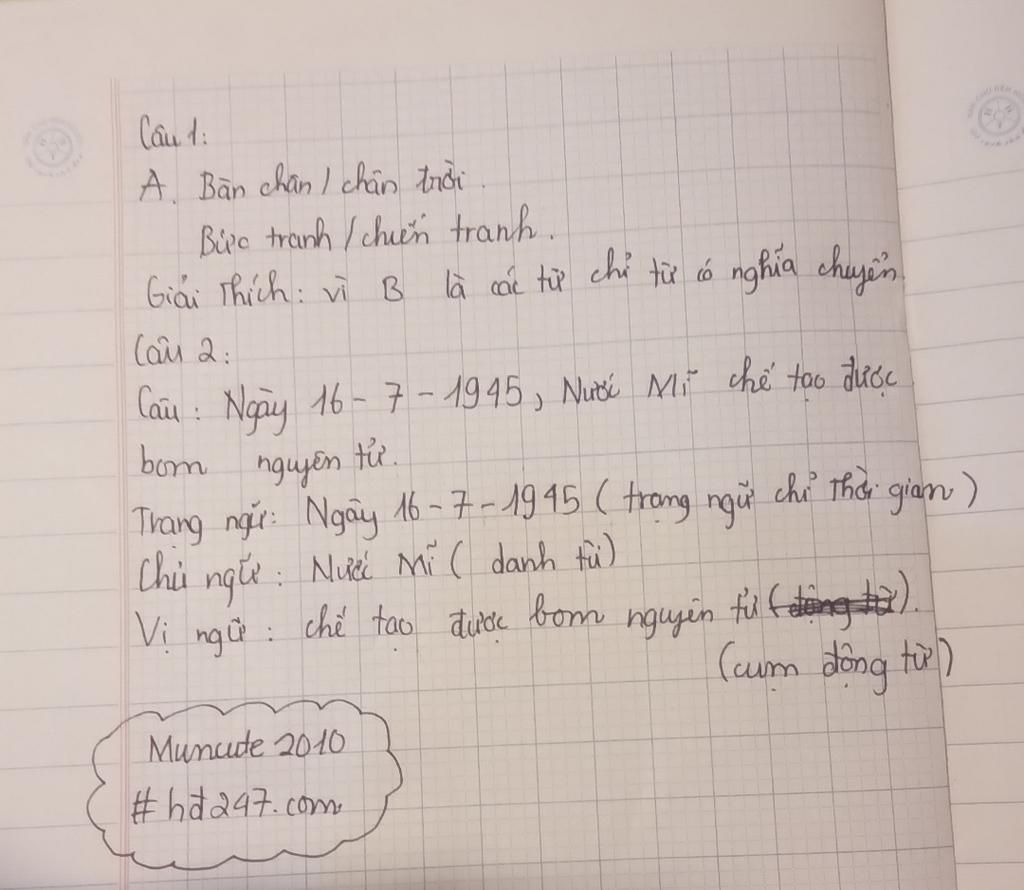 Câu 1:
A. Bàn chân / chân trời.
Bức tranh / chiến tranh.
Giải thích: vì B là các từ chỉ từ có nghĩa chuyển
Câu 2:
Câu: Ngày 16-7-1945, Nước Mĩ chế tạo được
bom nguyên tử.
Trạng ngữ: Ngày 16-7-1945 (trạng ngữ chỉ thời gian)
Chủ ngữ: Nước Mĩ (danh từ)
Vị ngữ: chế tạo được bom nguyên tử (động từ).
(cụm động từ)
Muncute 2010
#hđ247.com